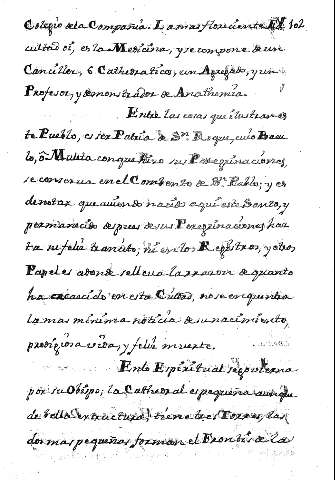 Colegio de la Compañia. La mas floreciente
cultad oi, es la Medicina, y se compone de un
Canciller, 6 Cathedraticos, un Agregado, y un
Profesor, y demonstrador de Anathomia.
Entre las cosas que ilustran es
te Pueblo, es ser Patria de Sn. Roque, cuio Bacu
lo, ò Muleta con que hizo sus Peregrinaciones,
se conserva en el Combento de Sn. Pablo; y es
de notar que aviendo nacido aqui este Santo, y
permanecido despues de sus Peregrinaciones, has
ta su feliz transito; ni en los Registros, y otros
Papeles adonde se lleva la rason de quanto
ha acaecido en esta Ciudad, no se enquentra
la mas minima noticia de su nacimiento,
prodigiosa vida, y feliz muerte.
En lo Espiritual se govierna
por su Obispo; la Cathedral es pequeña aunque
de bella extructura; tiene tres Torres, las
dos mas pequeñas forman el Frontis de la